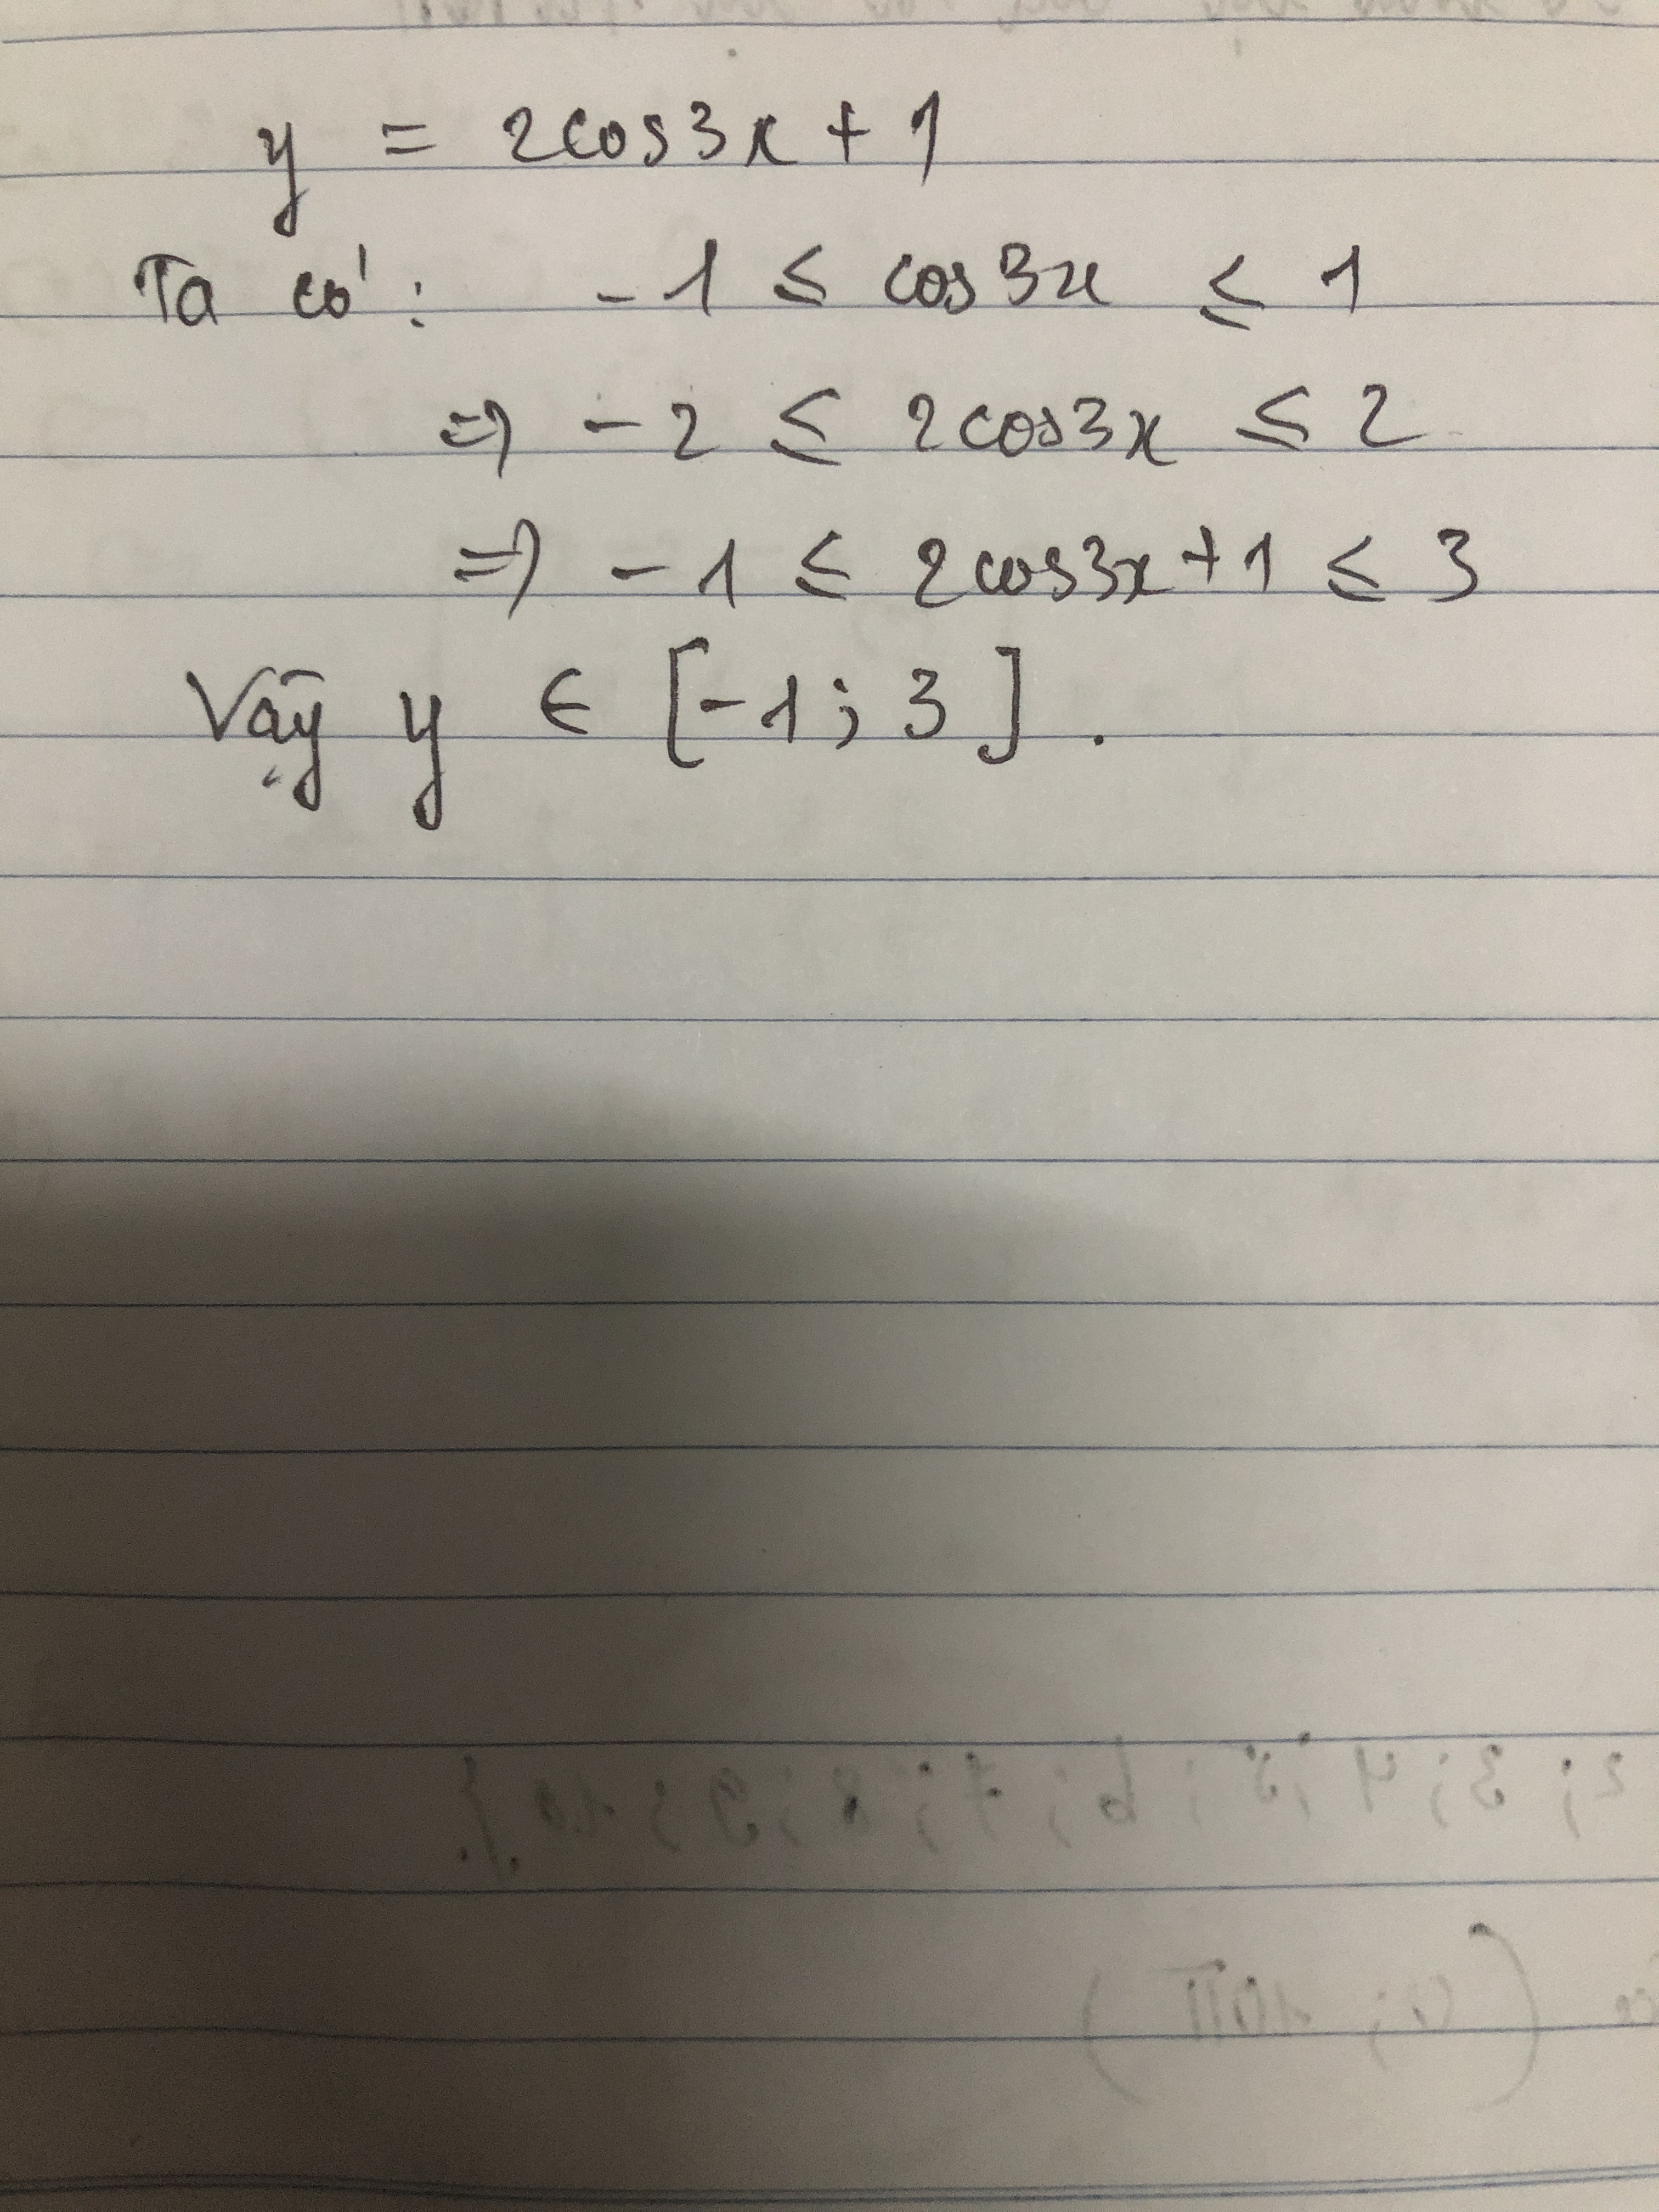 y = 2cos3x + 1
Ta có: -1 ≤ cos3x ≤ 1
=> -2 ≤ 2cos3x ≤ 2
=> -1 ≤ 2cos3x + 1 ≤ 3
Vậy y ∈ [-1; 3].